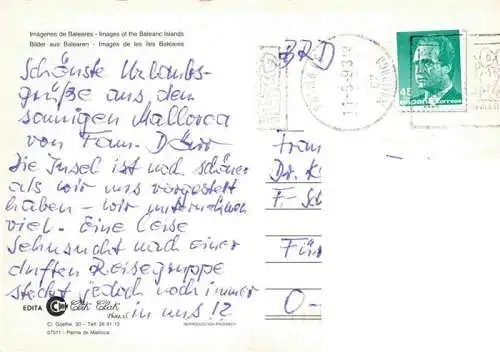 Imágenes de Baleares - Images of the Balearic Islands
Bilder aus Balearen - Images de les îles Baléares
Schönste Urlaubs-
grüße aus dem
sonnigen Mallorca
von Fam. Dürr
Die Insel ist noch schöner
als wir uns vorgestellt
haben - wir unternehmen
viel - Eine leise
Sehnsucht nach einer
duften Reisegruppe
steckt jedoch noch immer
in uns!?
BRD
11-5-93
45
ESPAÑA correos
Dr. K
F.-Sch
Für
O-
EDITA Click Clak
C/. Goethe, 30 - Telf. 28 81 13
07011 - Palma de Mallorca